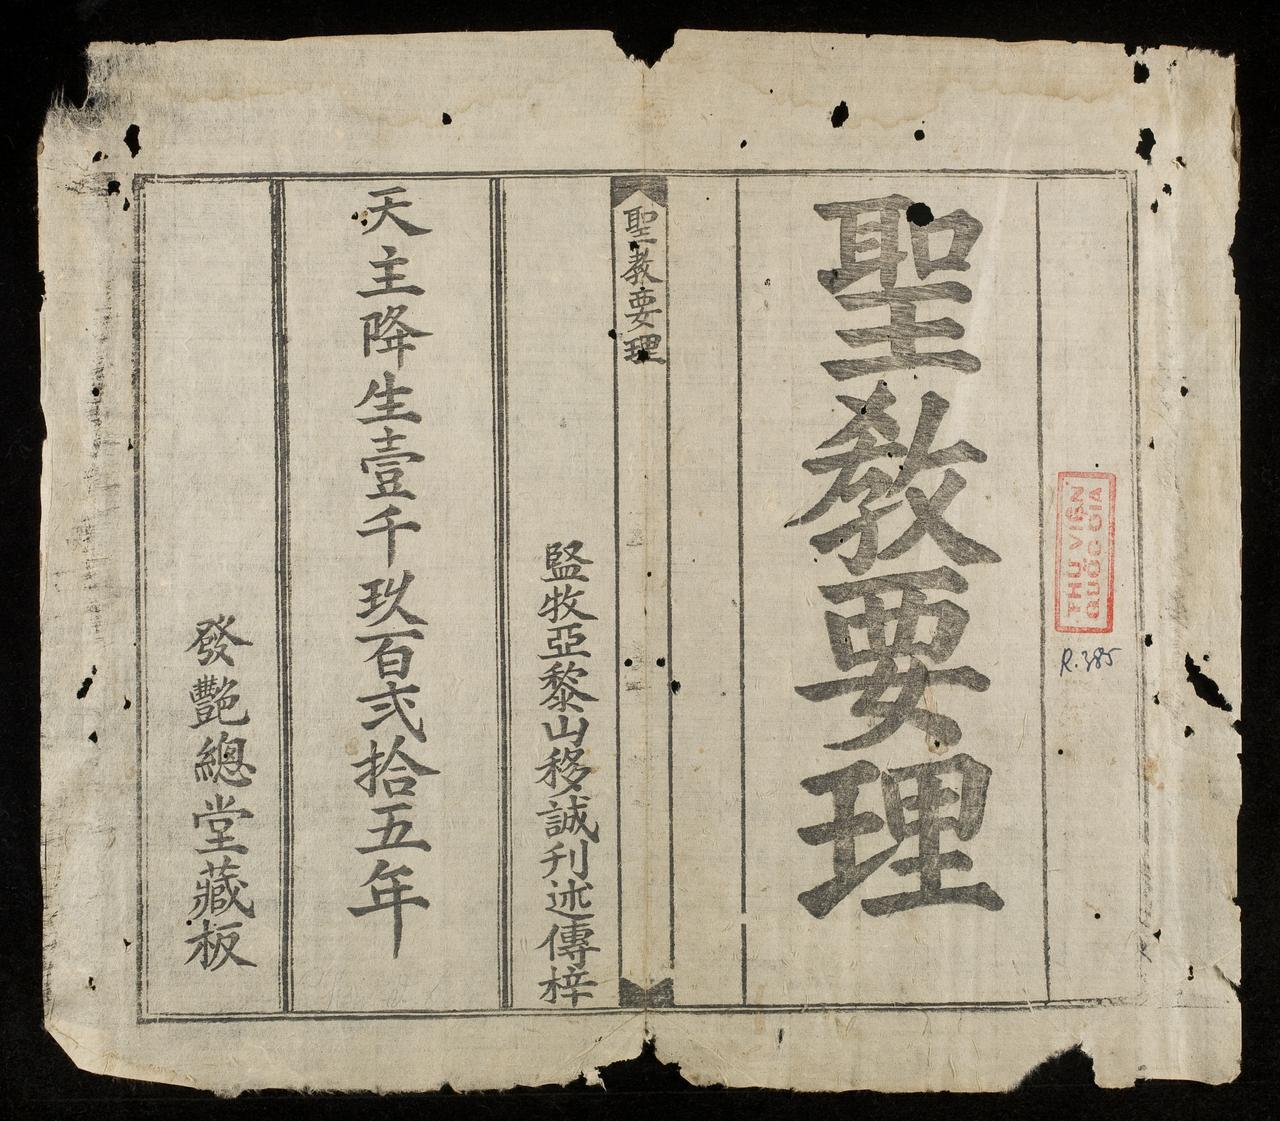 聖教要理
THƯ VIỆN
QUỐC GIA
R.385
聖教要理
監牧亞黎山移誠刋述傳梓
天主降生壹千玖百貳拾五年
發艷總堂藏板